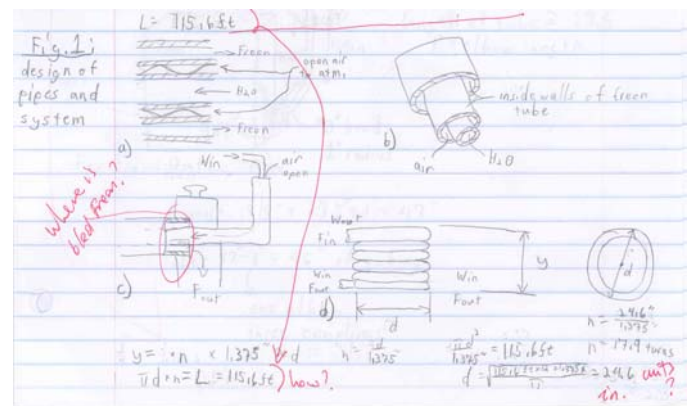 L = 115.6ft
Fig. 1:
design of
pipes and
system
→ Freon
open air
to atm.
← H2O
→ Freon
a)
inside walls of freon
tube
air
H2O
b)
Win
air
open
Where is
bled Freon?
c)
Fout
Wout
Fin
Win
Fout
Win
Fout
y
d
d
d)
y = · n × 1.375"
πd·n = L = 115.6ft
how?
n = d/1.375"
πd²/1.375" = 115.6ft
= 24.6
in.
units
?
n = 24.6"/1.375"
n = 17.9 turns